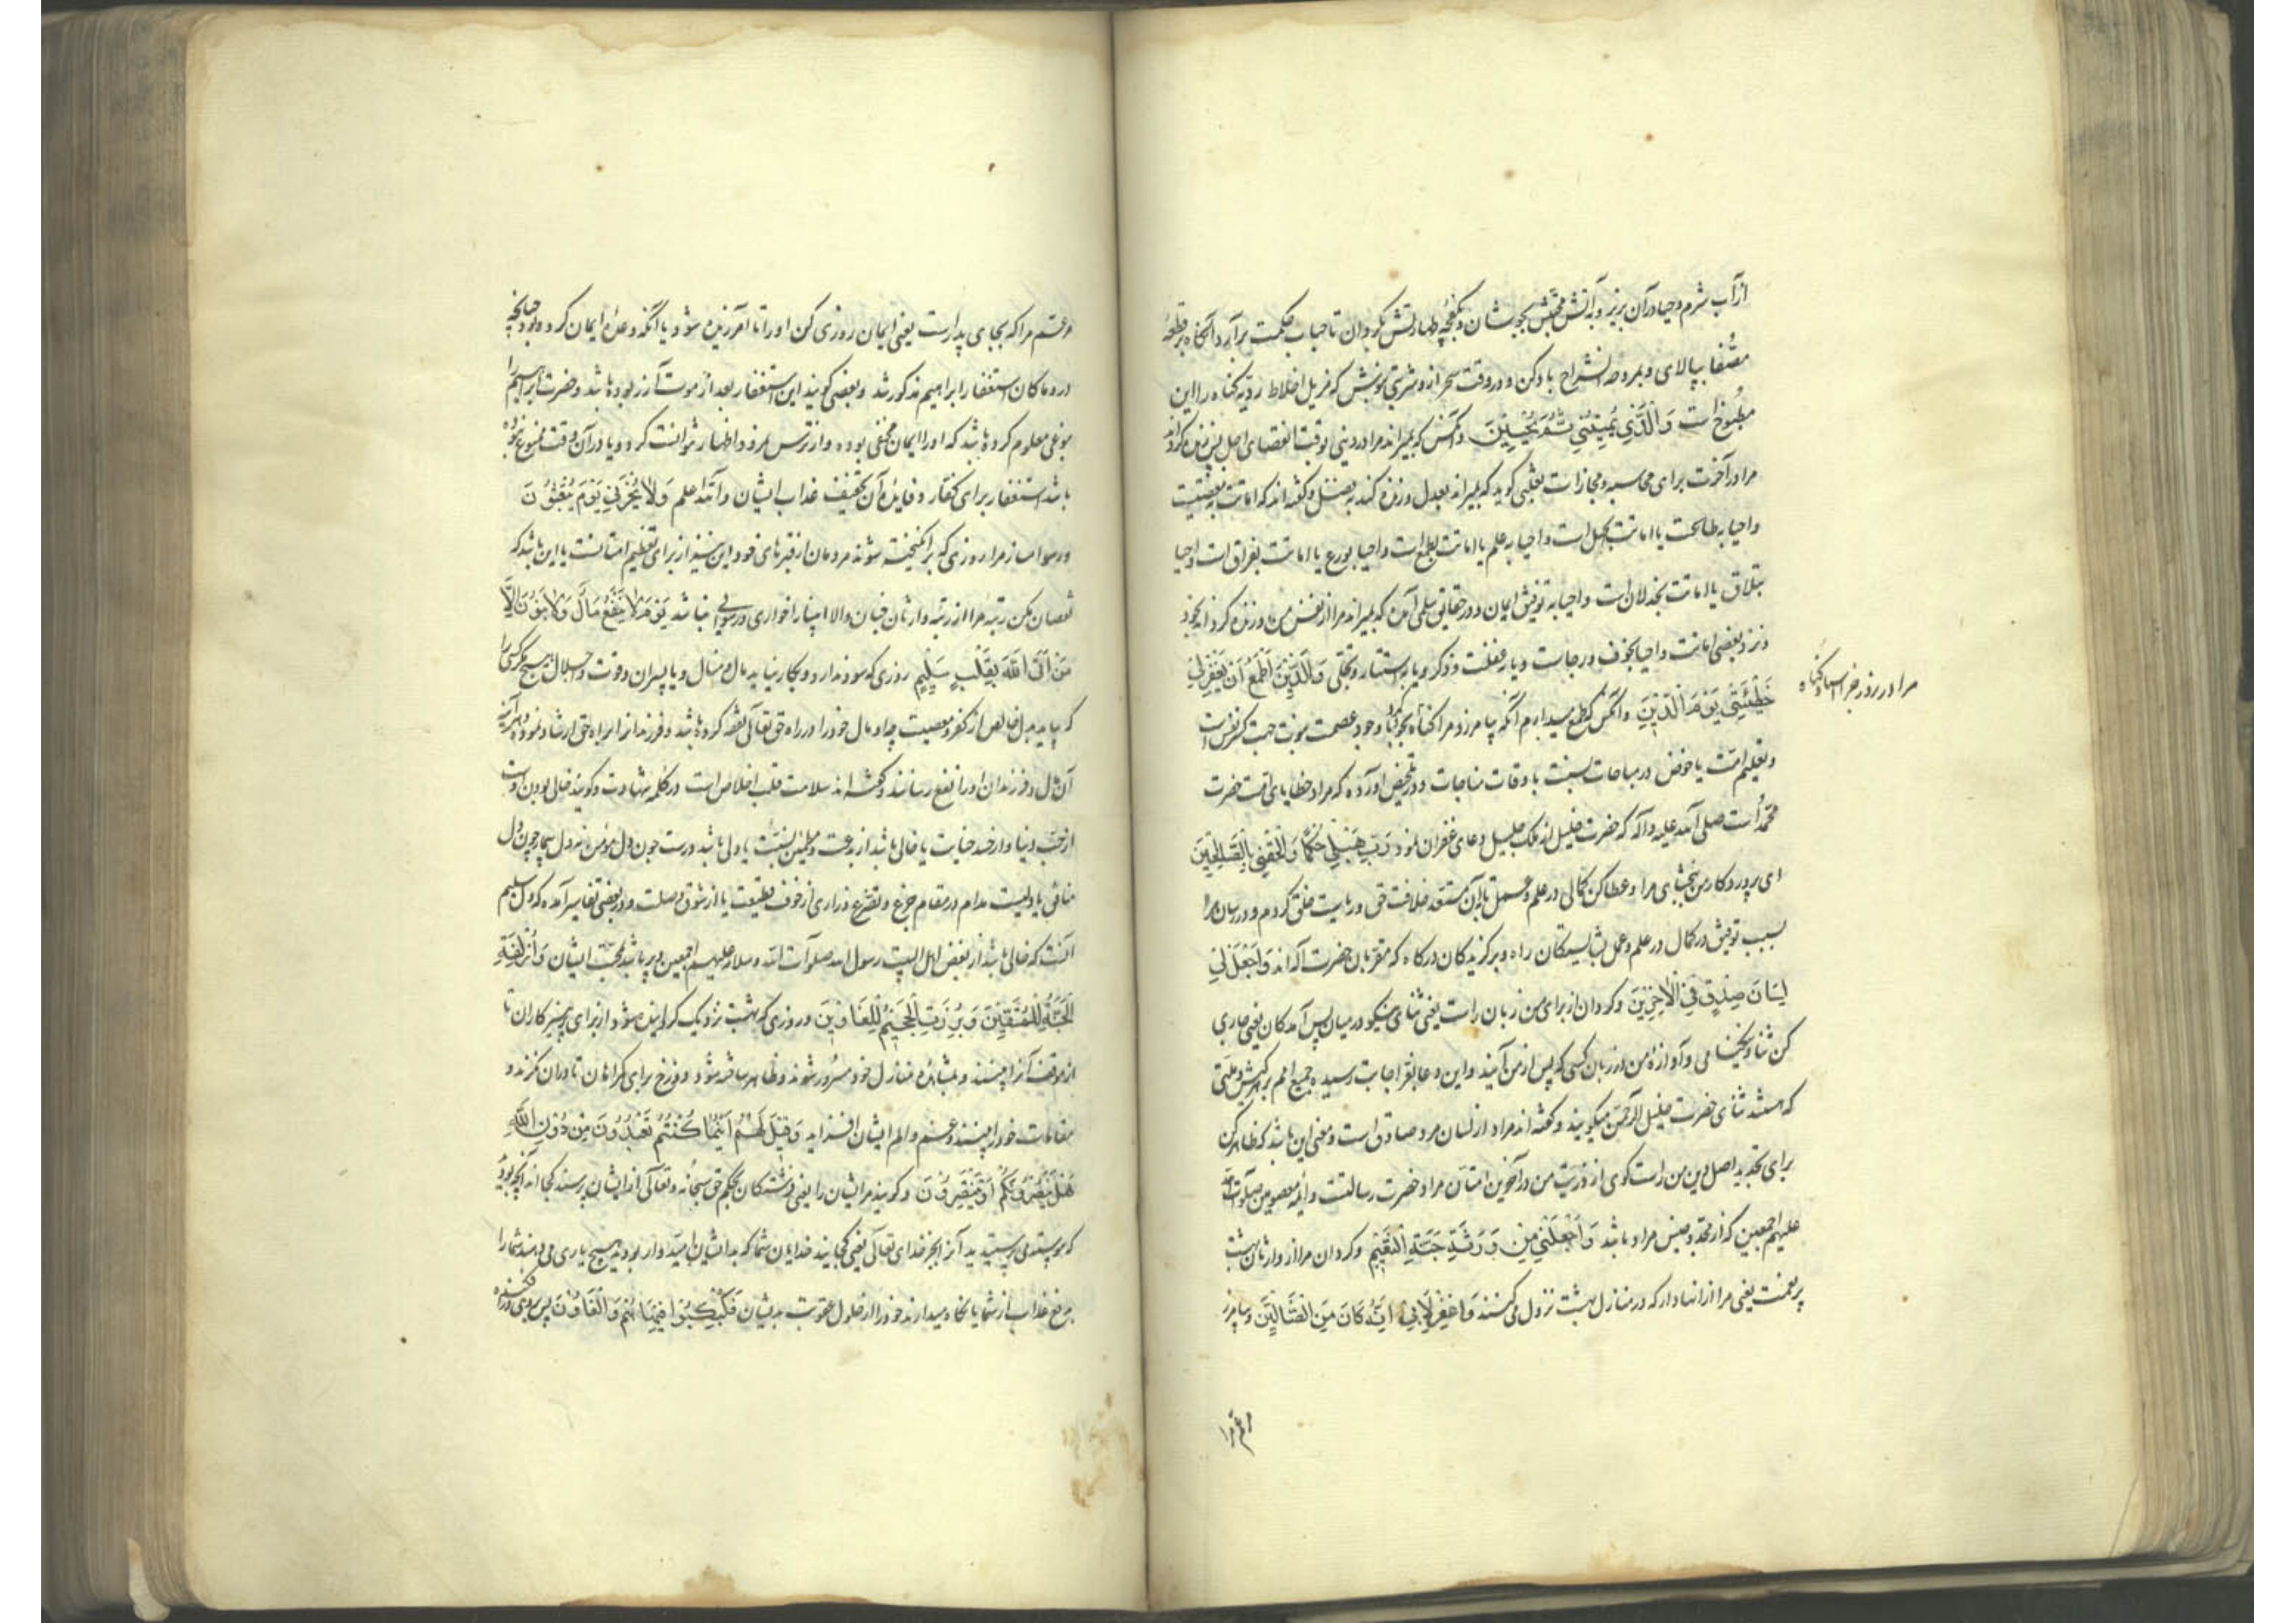 از آب شرم و حیا در آن بریز و بآتش محبتش بجوشان و بکفچه طهارتش بگردان تا حباب حکمت برآرد آنگاه برقعه
مصفا بپالای و بمروحه انشراح باد کن و در وقت سحر ازو شربتی بنوش که مزیل اخلاط ردیه گناه را این
مطبوخ است وَالَّذِی یُمِیتُنِی ثُمَّ یُحْیِینِ و آنکس که بمیراند مرا در دنیی بوقت انقضای اجل پس زنده گرداند
مرا در آخرت برای محاسبه و مجازات ثعلبی گوید که بمیراند بعدل و زنده کند بفضل و گفته اند که اماتت بمعصیت
و احیا به طاعت یا اماتت بجهل است و احیا به علم یا اماتت بطمع است و احیا بورع یا اماتت بفراق است و احیا
بتلاق یا اماتت بخذلان است و احیا به توفیق ایمان و در حقایق سلمی آمده که بمیراند مرا از نفس من و زنده گرداند بخود
و نزد بعضی اماتت و احیا بخوف و رجاست و یا بغفلت و ذکر و یا به استتار و تجلی وَالَّذِی أَطْمَعُ أَن یَغْفِرَ لِی
خَطِیئَتِی یَوْمَ الدِّینِ و آنکس که طمع میدارم آنکه بیامرزد مرا گناه
مرا در روز جزا
و تعلیم امت یا خوض در مباحات نسبت با اوقات مناجات و در تلخیص آورده که مراد خطایای امت حضرت
محمد است صلی الله علیه و آله که حضرت خلیل از ملک جلیل دعای غفران نمود رَبِّ هَبْ لِی حُکْمًا وَأَلْحِقْنِی بِالصَّالِحِینَ
ای پروردگار من ببخشای مرا و عطا کن کمالی در علم و عمل تا بآن مستعد خلافت حق و ریاست خلق گردم و در رسان مرا
بسبب توفیق در کمال در علم و عمل بشایستگان راه و برگزیدگان درگاه که مقربان حضرت آله اند وَاجْعَل لِّی
لِسَانَ صِدْقٍ فِی الْآخِرِینَ و گردان از برای من زبان راست یعنی ثنای نیکو در میان پس آمدگان یعنی جاری
کن ثنا و نیکنامی و آوازه من در زبان کسی که پس از من آیند و این دعا بعز اجابت رسیده جمیع امم بر هر کیش و ملتی
که هستند ثنای حضرت خلیل الرحمن میگویند و گفته اند مراد از لسان مرد صادق است و معنی این باشد که ظاهر کن
برای تجدید اصل دین من راست گوی از ذریت من در آخرین امتان مراد حضرت رسالتست و ائمه معصومین صلوات الله
علیهم اجمعین که از محمد و جنس مراد باشد وَاجْعَلْنِی مِن وَرَثَةِ جَنَّةِ النَّعِیمِ و گردان مرا از وارثان بهشت
پر نعمت یعنی مرا از آنها دار که در منازل بهشت نزول می کنند وَاغْفِرْ لِأَبِی إِنَّهُ کَانَ مِنَ الضَّالِّینَ و بیامرز
مرا که بجای پدر است یعنی ایمان روزی کن او را تا آمرزیده شود یا آنکه وعده ایمان کرده بود چنانچه
در و ما کان استغفار ابراهیم مذکور شد و بعضی گویند این استغفار بعد از موت آزر بوده باشد و حضرت ابراهیم را
بنوعی معلوم کرده باشد که او را ایمان مخفی بوده و از ترس نمرود اظهار نتوانست کرد و یا در آن وقت ممنوع نبوده
باشد استغفار برای کفار و فایده آن تخفیف عذاب ایشان والله اعلم وَلَا تُخْزِنِی یَوْمَ یُبْعَثُونَ
و رسوا مساز مرا روزی که برانگیخته شوند مردمان از قبرهای خود این نیز از برای تعلیم امتانست یا این باشد که
نقصان مکن رتبه مرا از رتبه وارثان جنان والا انبیا را خواری و رسوایی نباشد یَوْمَ لَا یَنفَعُ مَالٌ وَلَا بَنُونَ إِلَّا
مَنْ أَتَی اللَّهَ بِقَلْبٍ سَلِیمٍ روزی که سود ندارد و بکار نیاید مال و منال و یا پسران و قوت و جلال هیچ کس را مگر کسی را
که بیاید بدل خالص از کفر و معصیت چه او مال خود را در راه حق تعالی نفقه کرده باشد و فرزندانرا براه حق ارشاد نموده هر آینه
آن مال و فرزندان او را نفع رسانند و گفته اند سلامت قلب اخلاص است در کلمه شهادت و گویند خالی بودن است
از حب دنیا و از حسد و خیانت یا خالی باشد از بدعت و مطمئن بسنت یا دلی باشد درست چون دل مؤمن نه دل بیمار چون دل
منافق یا دلیست مدام در مقام جزع و تضرع و زاری از خوف قطیعت یا از شوق وصلت و در بعضی تفاسیر آمده که دل سلیم
آنست که خالی باشد از بغض اهل البیت رسول الله صلوات الله و سلامه علیهم اجمعین و پر باشد بمحبت ایشان وَأُزْلِفَتِ
الْجَنَّةُ لِلْمُتَّقِینَ وَبُرِّزَتِ الْجَحِیمُ لِلْغَاوِینَ و روزی که بهشت نزدیک گردانیده شود از برای پرهیزکاران تا
از موقف آنرا ببینند و بمشاهده منازل خود مسرور شوند و ظاهر ساخته شود دوزخ برای گمراهان تا در آن نگرند و
مقامات خود را ببینند و غم و الم ایشان افزاید وَقِیلَ لَهُمْ أَیْنَمَا کُنتُمْ تَعْبُدُونَ مِن دُونِ اللَّهِ
هَلْ یَنصُرُونَکُمْ أَوْ یَنتَصِرُونَ و گویند مر ایشان را یعنی فرشتگان بحکم حق سبحانه و تعالی از ایشان پرسند کجااند آنچه بودید
که پیوسته می پرستیدید آنرا بجز خدای تعالی یعنی کجایند خدایان شما که بدیشان امیدوار بودید هیچ یاری می دهند شما را
بدفع عذاب از شما یا نگاه میدارند خود را از حلول عقوبت بدیشان فَکُبْکِبُوا فِیهَا هُمْ وَالْغَاوُونَ پس